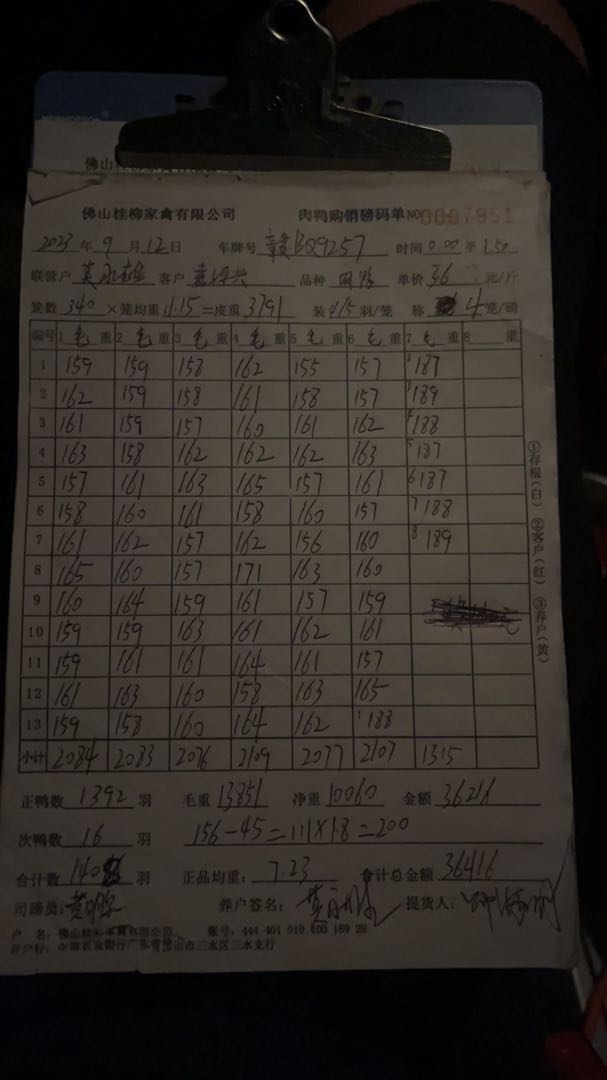 佛山桂柳家禽有限公司 肉鸭购销磅码单 NO 0007951
2023年9月12日 车牌号 赣BQ9257 时间0:00至1:50
联营户 客户 品种 单价36元/斤
笼数340×笼均重11.15=皮重3791 装4/5羽/笼 称4笼/磅
编号 1毛重 2毛重 3毛重 4毛重 5毛重 6毛重 7毛重 8重
1 159 159 158 162 155 157 187
2 162 159 158 161 158 157 3 189
3 161 159 157 160 161 162 4 188
4 163 158 162 162 162 163 5 187
5 157 161 163 165 157 161 6 187
6 158 160 161 158 160 157 7 188
7 161 162 157 162 156 160 8 189
8 165 160 157 171 163 160
9 160 164 159 161 157 159
10 159 159 163 161 162 161
11 159 161 161 164 161 157
12 161 163 160 158 163 165
13 159 158 160 164 162 1 188
小计 2084 2083 2076 2109 2077 2107 1315
正鸭数1392羽 毛重13851 净重10060 金额36216
次鸭数16羽 156-45=111×1.8=200
合计数 羽 正品均重:7.23 合计总金额36416
司磅员: 养户签名: 提货人:
户 名:佛山桂柳家禽有限公司 账号:444 401 010 400 169 29
开户行:中国农业银行广东省佛山市三水区三水支行
①存根(白) ②客户(红) ③养户(黄)